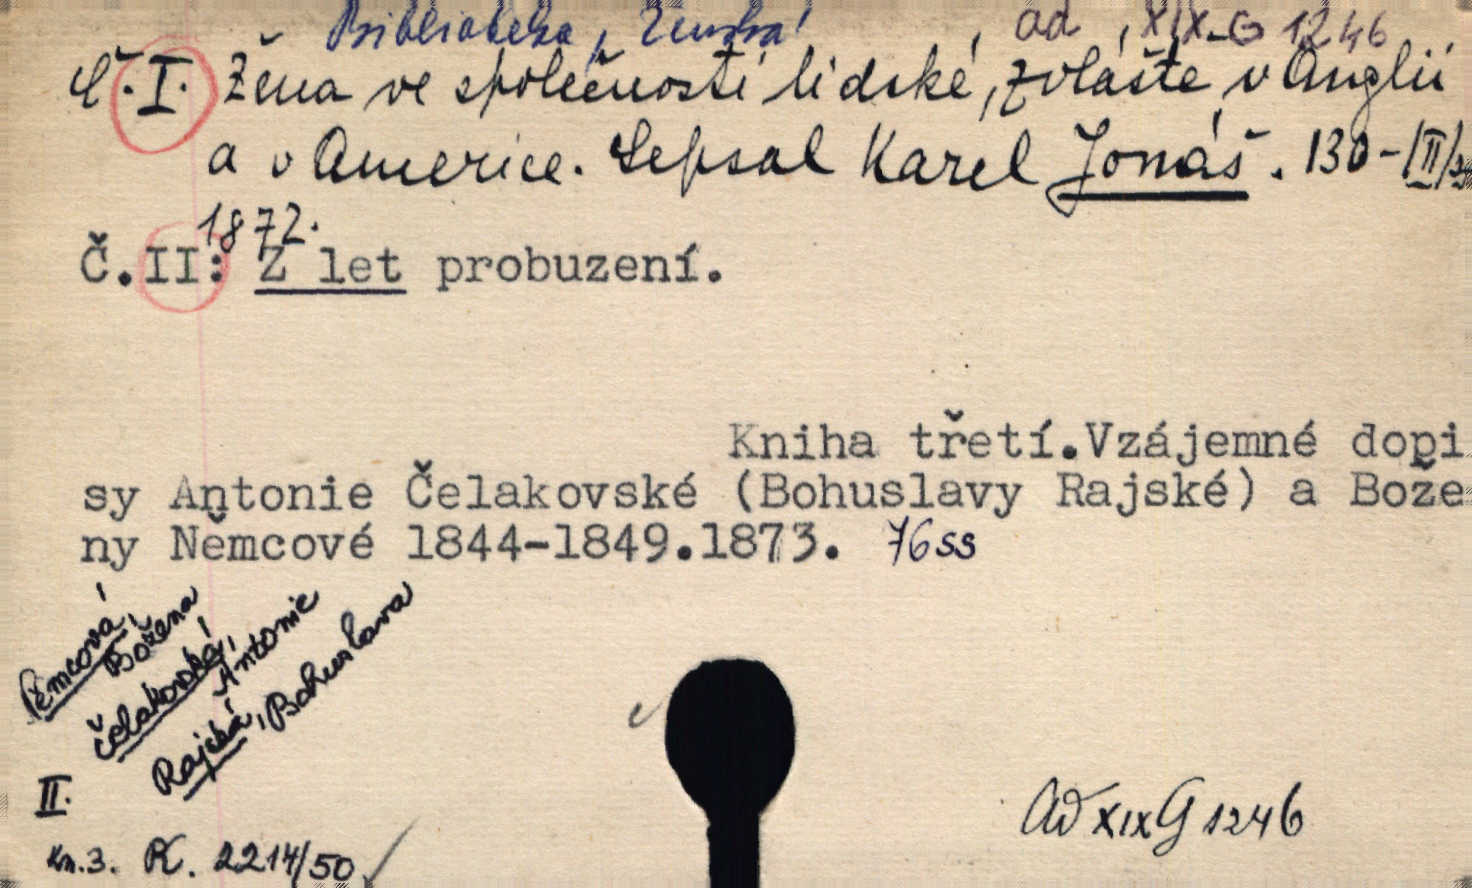 Bibliotéka, Ženská ad XIX G 1246
Č. I. Žena ve společnosti lidské, zvláště v Anglii
a v Americe. Sepsal Karel Jonáš. 130-(II)s
1872.
Č.II: Z let probuzení.
Kniha třetí.Vzájemné dopi
sy Antonie Čelakovské (Bohuslavy Rajské) a Bože
ny Němcové 1844-1849.1873. 76ss
Němcová, Božena
Čelakovská, Antonie
Rajská, Bohuslava
II.
kn.3. K. 2214/50
Ad XIX G 1246